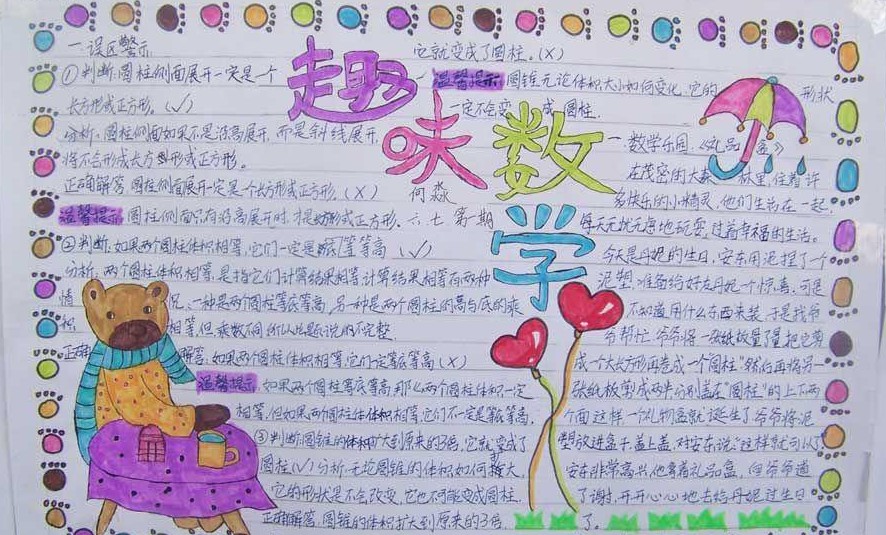 趣味数学
何淼
六.七 第一期
一.误区警示
①判断:圆柱侧面展开一定是一个
长方形或正方形。(✓)
分析:圆柱侧面如果不是沿高展开,而是斜线展开,
将不会形成长方形或正方形。
正确解答:圆柱侧面展开一定是个长方形或正方形.(X)
温馨提示:圆柱侧面只有沿高展开时,才是 形或正方形.
②判断:如果两个圆柱体积相等,它们一定是 等底等高 (✓)
分析:两个圆柱体积相等,是指它们计算结果相等,计算结果相等有两种
情 况,一种是两个圆柱等底等高,另一种是两个圆柱的高与底的乘
积 相等,但乘数不同,所以此题说的不完整.
正确 解答:如果两个圆柱体积相等,它们一定等底等高(X)
温馨提示:如果两个圆柱等底等高,那么两个圆柱体积一定
相等,但如果两个圆柱体体积相等,它们不一定是等底等高.
③判断:圆锥的体积扩大到原来的3倍,它就变成了
圆柱(✓)分析:无论圆锥的体积如何扩大,
它的形状是不会改变,它也不可能变成圆柱.
正确解答:圆锥的体积扩大到原来的3倍,
它就变成了圆柱。(X)
温馨提示:圆锥无论体积大小如何变化,它的 形状
一定不会变 成 圆柱.
一.数学乐园.《礼品 盒》
在茂密的大森 林里,住着许
多快乐的小精灵,他们生活在一起,
每天无忧无虑地玩耍,过着幸福的生活。
今天是丹妮的生日,安东用泥捏了一个
泥塑,准备给好友丹妮一个惊喜,可是
不知道用什么东西来装,于是找爷
爷帮忙,爷爷将一张纸数量了量,把它剪
成一个大长方形再卷成一个圆柱"然后再将另一
张纸板剪成两半分别盖在"圆柱"的上下两
个面,这样一个礼物盒就诞生了,爷爷将泥
塑放进盒子,盖上盖,对安东说:"这样就可以了"
安东非常高兴,他拿着礼品盒,向爷爷道
了谢,开开心心地去给丹妮过生日
了。